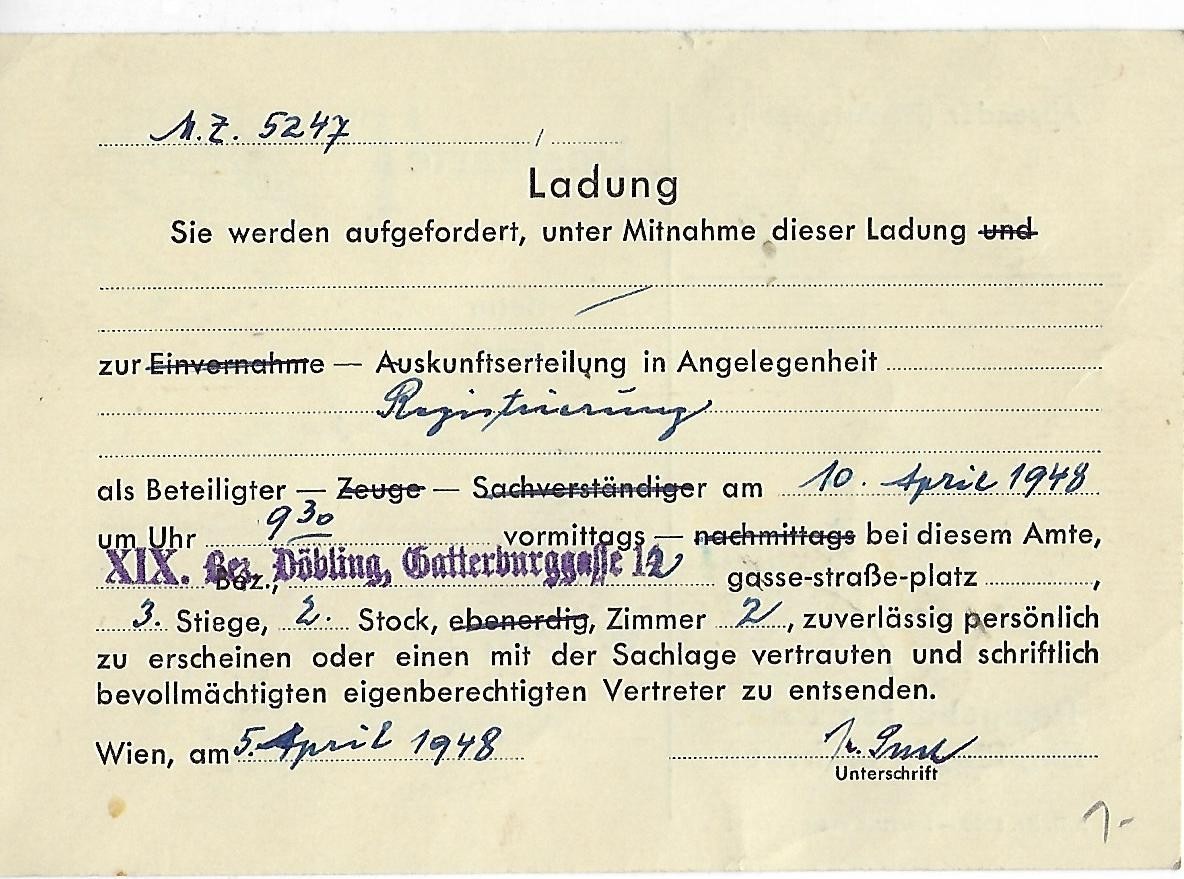 M.Z. 5247 /
Ladung
Sie werden aufgefordert, unter Mitnahme dieser Ladung und
zur Einvernahme — Auskunftserteilung in Angelegenheit
Registrierung
als Beteiligter — Zeuge — Sachverständiger am 10. April 1948
um Uhr 9 30 vormittags — nachmittags bei diesem Amte,
XIX. Bez. Döbling, Gatterburggasse 12
Bez., gasse-straße-platz ,
3. Stiege, 2. Stock, ebenerdig, Zimmer 2, zuverlässig persönlich
zu erscheinen oder einen mit der Sachlage vertrauten und schriftlich
bevollmächtigten eigenberechtigten Vertreter zu entsenden.
Wien, am 5. April 1948
Unterschrift